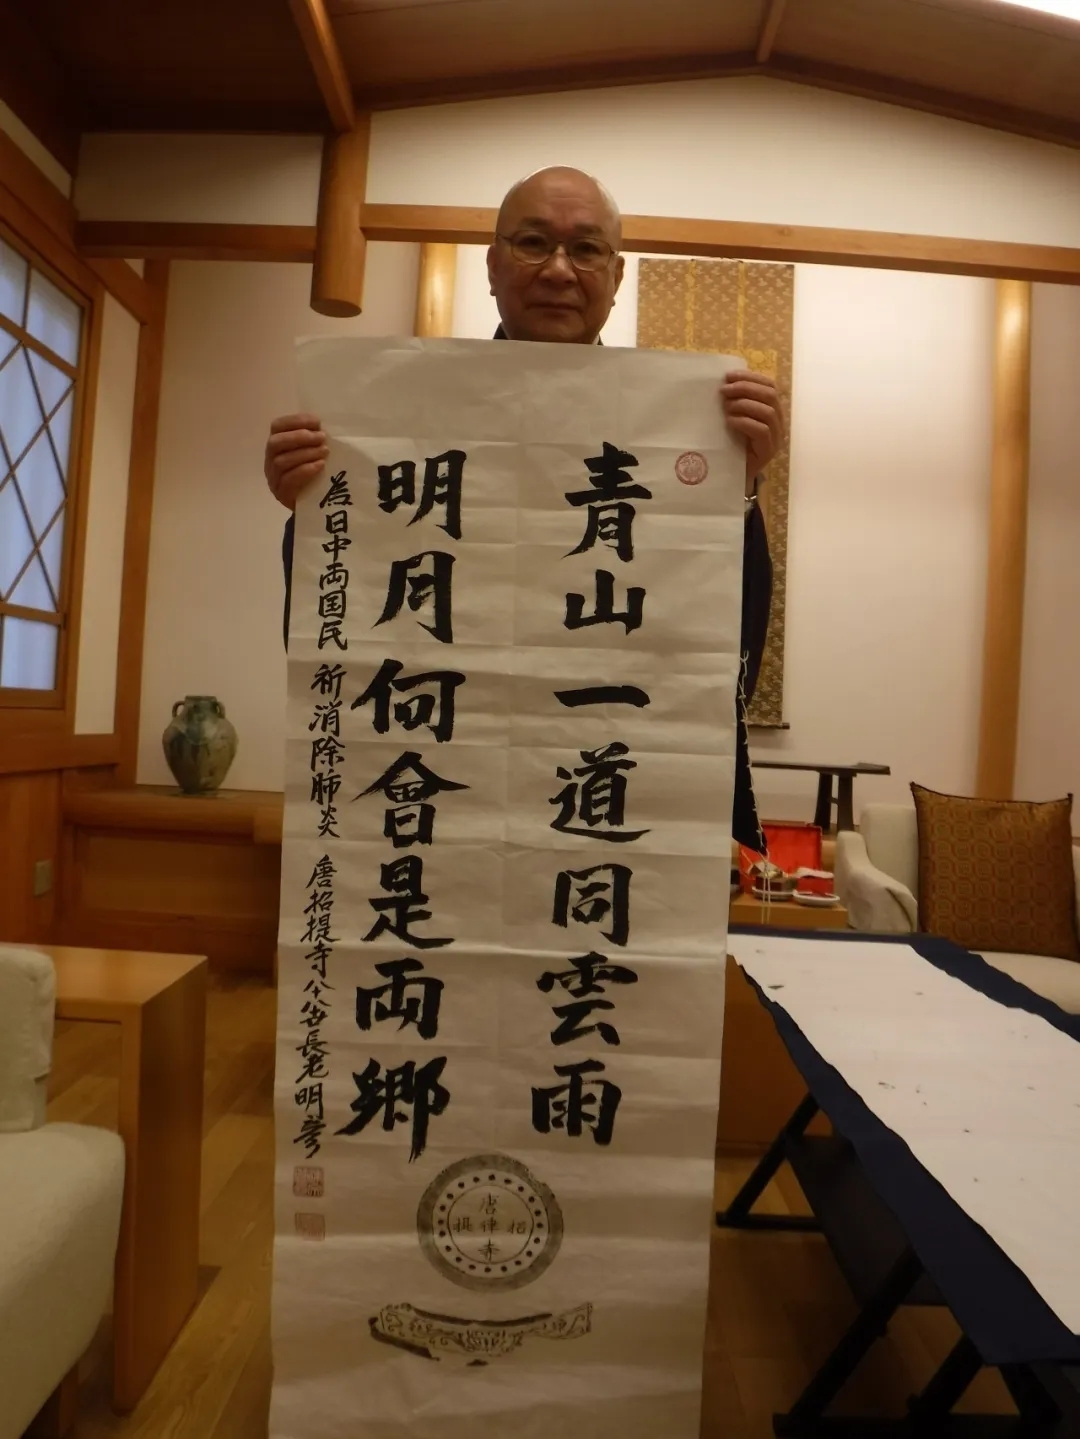 青山一道同雲雨
明月何曾是両郷
為日中両国民 祈消除肺炎 唐招提寺八十八世長老明彦
唐律招提寺